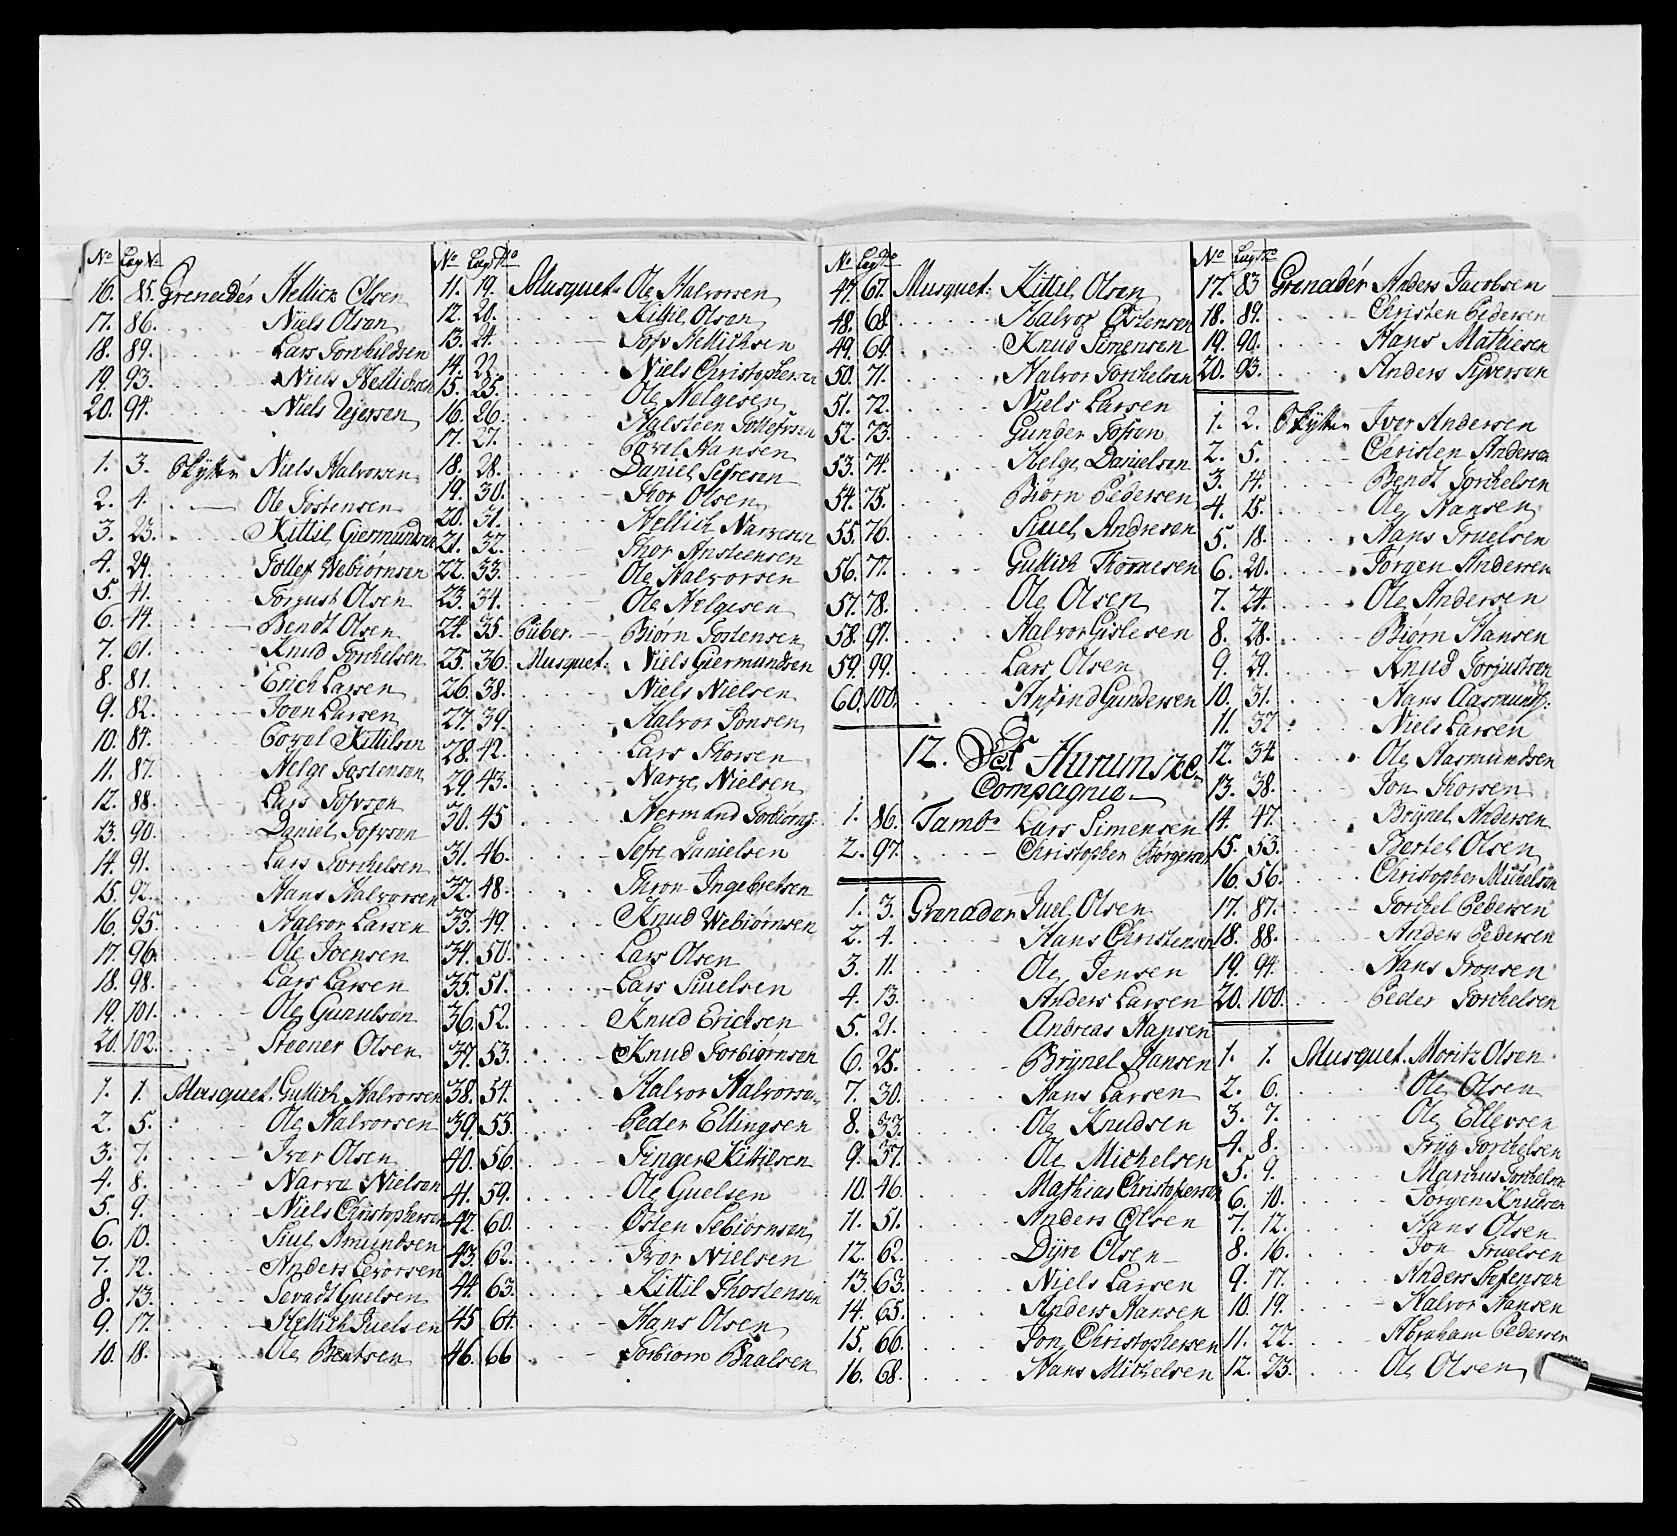 No Læg No
16. 85. Grenadér Hellick Olsen
17. 86. Niels Olsen
18. 89. Lars Torkildsen
19. 93. Niels Hellichsen
20. 94. Niels Zejersen
1. 3. Skÿtter Niels Halvorsen
2. 4. Ole Tostensen
3. 23. Kittil Giermundsen
4. 29. Tollef Webiørnsen
5. 41. Torjust Olsen
6. 44. Bendt Olsen
7. 61. Knud Torchelsen
8. 81. Erich Larsen
9. 82. Joen Larsen
10. 84. Corol Kittilsen
11. 87. Helge Tostensen
12. 88. Lars Tofvson
13. 90. Daniel Tofvson
14. 91. Lars Torchelsen
15. 92. Hans Halvorsen
16. 95. Halvor Larsen
17. 96. Ole Joensen
18. 98. Lars Larsen
19. 101. Ole Gunulsen
20. 102. Steener Olsen
1. 1. Musquet. Gullich Halvorsen
2. 5. Ole Halvorsen
3. 7. Iver Olsen
4. 8. Narve Nielsen
5. 9. Niels Christophersen
6. 10. Juel Amundsen
7. 12. Anders Levorsen
8. 13. Sevadt Guelsen
9. 17. Hellich Juelsen
10. 18. Ole Bentsen
No Læg No
11. 19. Musquet. Ole Halvorsen
12. 20. Kittil Olsen
13. 21. Tofs Hellichsen
14. 22. Niels Christophersen
15. 25. Ole Helgesen
16. 26. Halsteen Tollefsen
17. 27. Corol Hansen
18. 28. Daniel Sefresen
19. 30. Thor Olsen
20. 31. Hellich Narvesen
21. 32. Thor Ansteensen
22. 33. Ole Halvorsen
23. 34. Ole Helgesen
24. 35. Piber. Biørn Tostensen
25. 36. Musquet: Niels Giermundsen
26. 38. Niels Nielsen
27. 39. Halvor Jonsen
28. 42. Lars Thorsen
29. 43. Narve Nielsen
30. 45 Hermand Torbiørns:
31. 46. Sefre Danielsen
32. 48. Thron Ingebretsen
33. 49. Knud Webiørnsen
34. 50. Lars Olsen
35. 51. Lars Juelsen
36. 52. Knud Erichsen
37. 53. Knud Torbiørnsen
38. 54. Halvor Halvorsen
39. 55 Peder Ellingsen
40. 56. Finger Kittilsen
41. 59. Ole Guelsen
42. 60. Østen Sebiørnsen
43. 62. Iver Nielsen
44. 63. Kittil Thostensen
45 64. Hans Olsen
46. 66 Torbiørn Baalsen
No Læg No
47. 67. Musquet: Kittil Olsen
48. 68. Halvor Østensen
49. 69. Knud Simensen
50. 71. Halvor Torchelsen
51. 72. Niels Larsen
52. 73. Gunder Tofson
53. 74. Helge Danielsen
54. 75. Biørn Pedersen
55. 76. Juel Andresen
56. 77. Gullich Thomesen
57. 78. Ole Olsen
58. 97. Halvor Gislesen
59. 99. Lars Olsen
60. 100. Anfind Gundersen
12. Det Hurumske
Compagnie
1. 86. Tambr Lars Simensen
2. 97. Christopher Børgersen
1. 3. Grenader Juel Olsen
2. 4. Hans Christensen
3. 11. Ole Jensen
4. 13. Anders Larsen
5. 21. Andreas Hansen
6. 25. Brÿnel Hansen
7. 30. Hans Larsen
8. 33. Ole Knudsen
9. 37. Ole Michelsen
10. 46. Mathias Christophersen
11. 51. Anders Olsen
12. 62. Dÿre Olsen
13. 63. Niels Larsen
14. 65. Anders Hansen
15. 66. Jon Christophersen
16. 68. Hans Michelsen
No Læg No
17. 83 Grenadér Anders Jacobsen
18. 89. Christen Pedersen
19. 90. Hans Mathiesen
20. 93. Anders Syversen
1. 2. Skÿtter Iver Andersen
2. 5. Christen Andersen
3. 14. Bendt Torchelsen
4. 15. Ole Hansen
5. 18. Hans Truelsen
6. 20. Jørgen Andersen
7. 24. Ole Andersen
8. 28. Biørn Hansen
9. 29. Knud Torjustsen
10. 31. Hans Aasmunds:
11. 32. Niels Larsen
12. 34 Ole Aasmundsen
13. 38. Jon Thorsen
14. 47. Brÿnel Andersen
15. 53. Bertel Olsen
16. 56. Christopher Michelsen
17. 87. Torchel Pedersen
18. 88. Anders Pedersen
19. 94. Hans Tronsen
20. 100. Peder Torchelsen
1. 1. Musquet. Moritz Olsen
2. 6. Ole Olsen
3. 7. Ole Ellevsen
4. 8. Trüg Torchelsen
5. 9. Marcus Torchelsen
6. 10. Jørgen Knudsen
7. 12. Hans Olsen
8. 16. Jon Truelsen
9. 17. Anders Stefensen
10. 19. Halvor Hansen
11. 22. Abraham Pedersen
12. 23. Ole Olsen